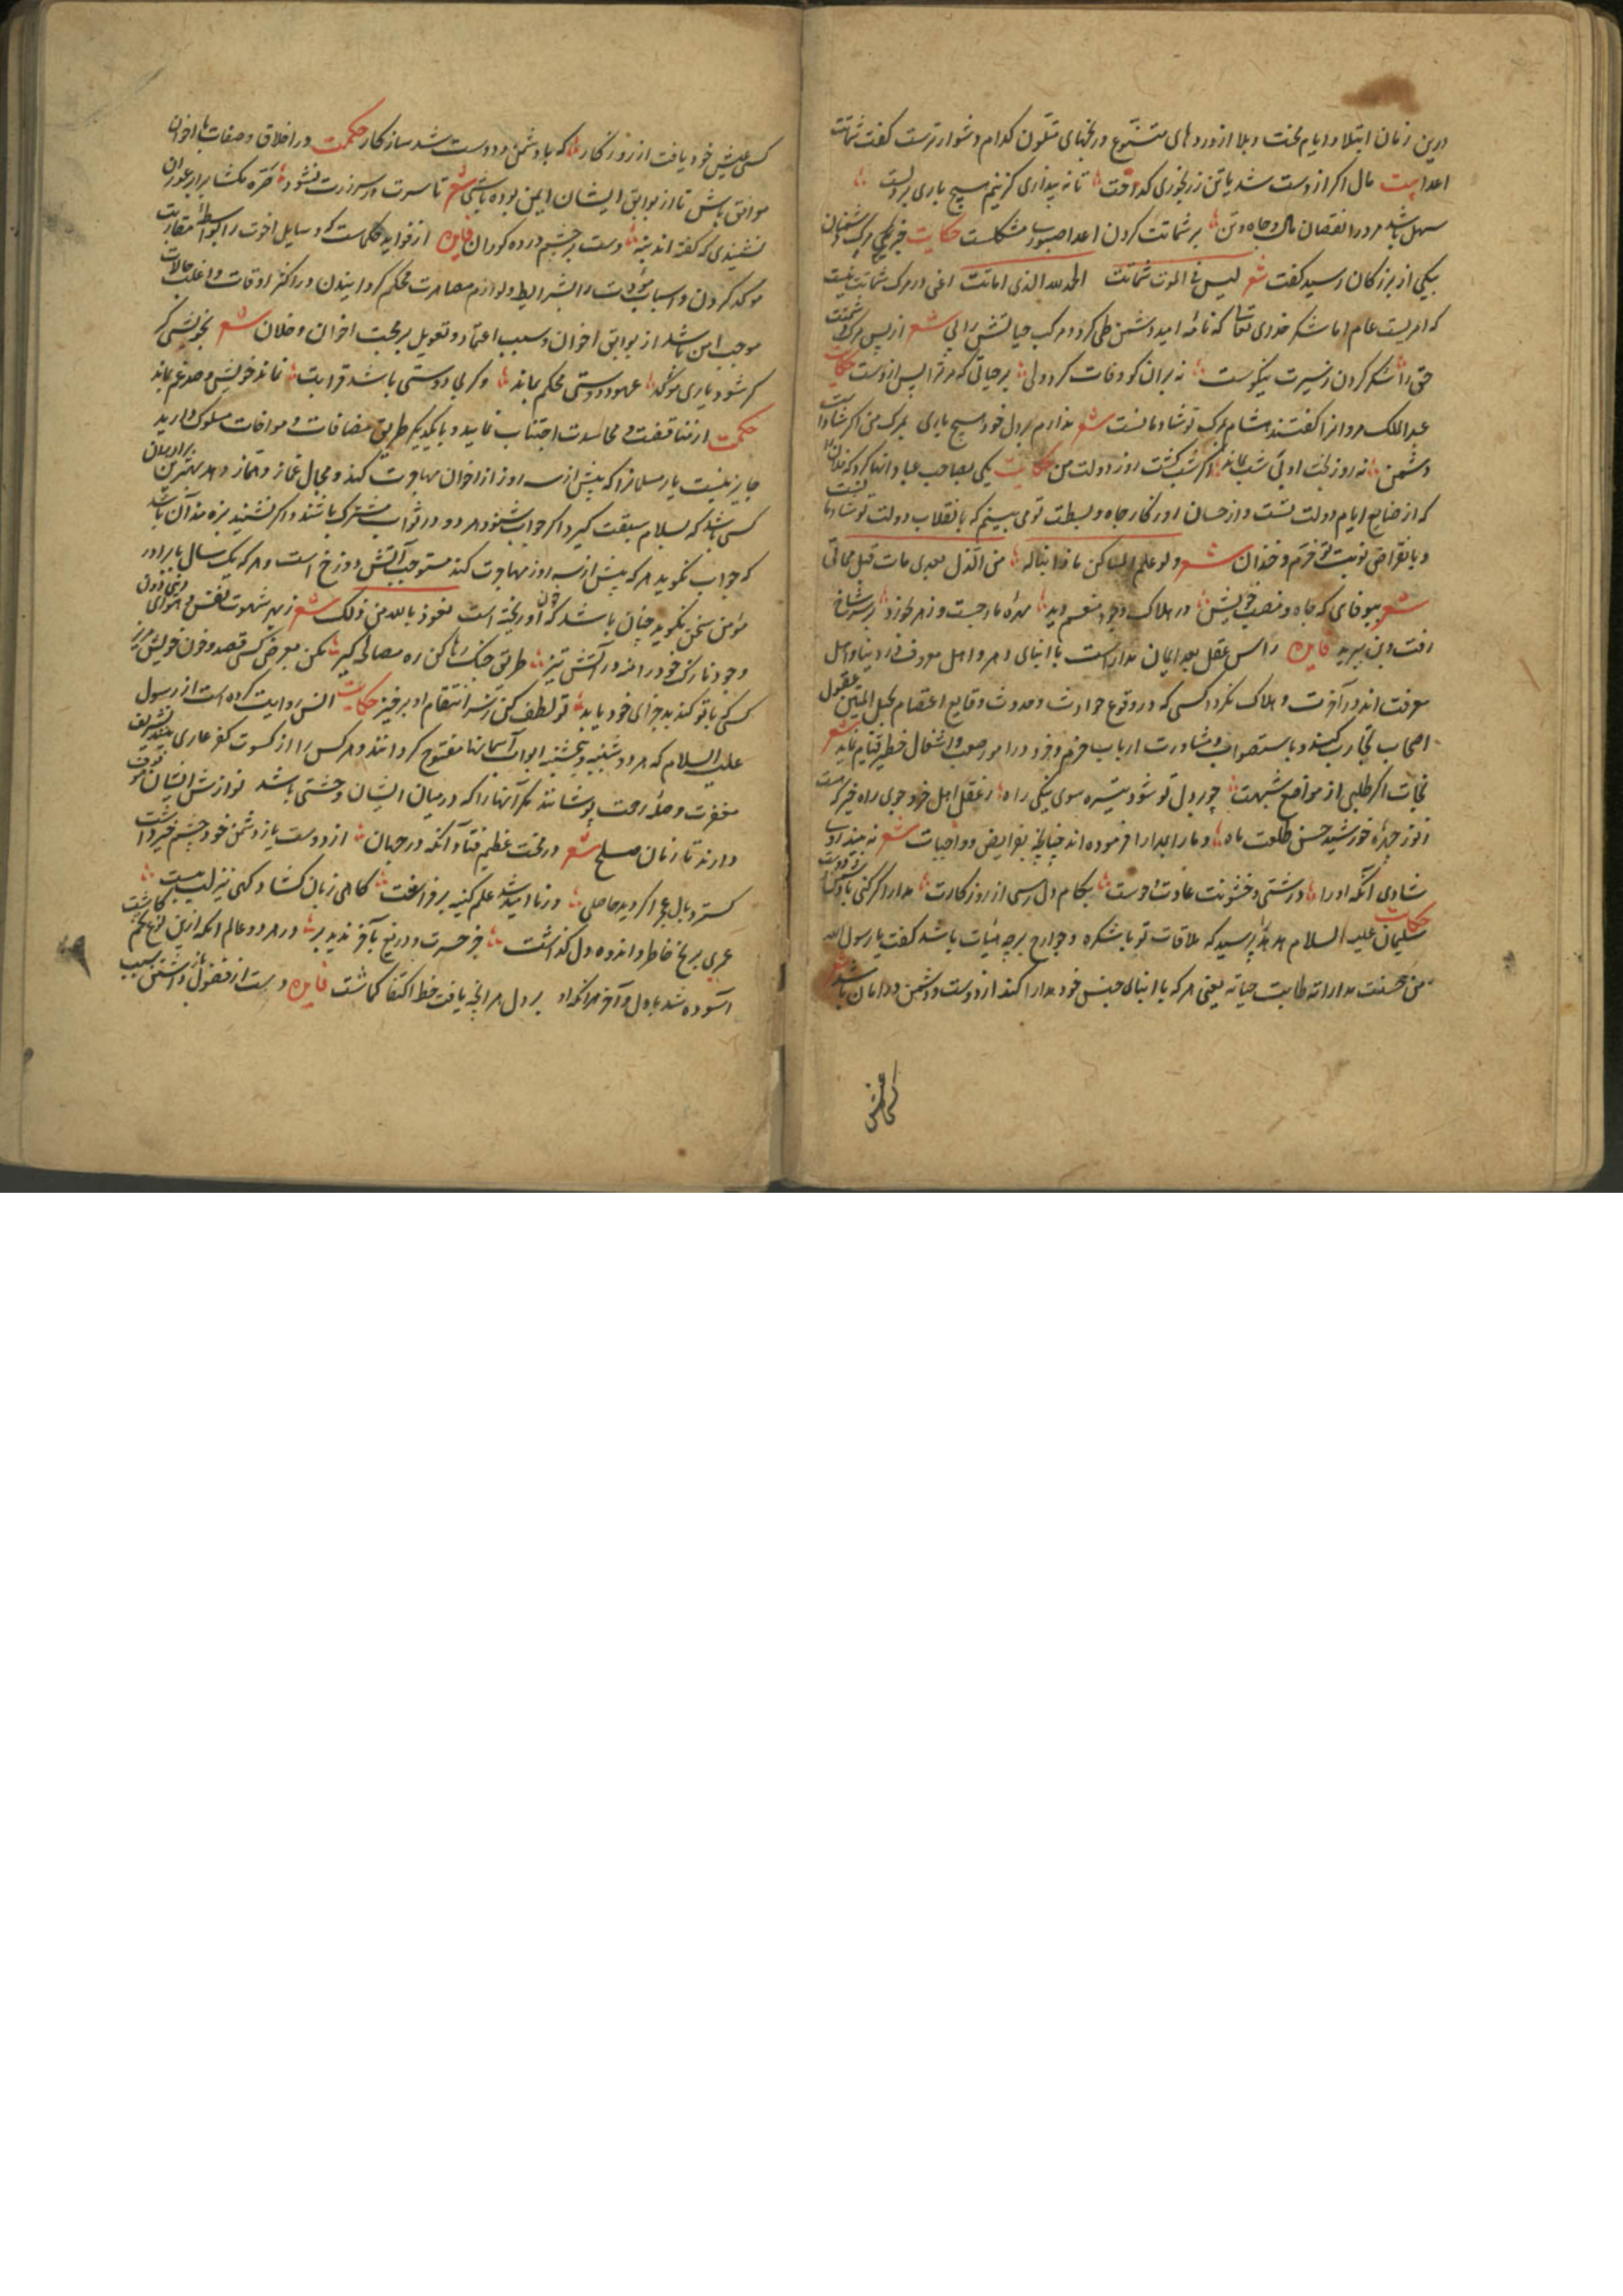 درین زمان ابتلا و ایام محنت و بلا از دردهای متنوع و رنجهای متلون کدام دشوارترست گفت شماتت
اعدا بیت مال اگر از دست شد یا تن ز رنجوری گداخت تا نه پنداری کزینم هیچ باری بر دلست
سهل باشد مرد را نقصان مال و جاه و تن بر شماتت کردن اعدا صبوری مشکلست حکایت خبر مرگ دشمنان
بیکی از بزرگان رسید گفت شعر لیس فی الموت شماتت الحمد لله الذی اماتت اعنی در مرگ شماتت نیست
که امریست عام اما شکر خدای تعالی که نامه امید دشمن طی کرد و مرکب حیاتش را پی شعر از پس مرگ
حق را شکر کردن ز سیرت نیکوست نه بران کو وفات کرد ولی بر حیاتی که مر ترا پس ازوست حکایت
عبدالملک مروانرا گفتند هشام بمرگ تو شادمانست شعر ندارم بر دل خود هیچ باری بمرگ من اگر شادست
دشمن نه روز بخت او بی شب بماند اگر شب گشت روز دولت من حکایت یکی بصاحب عباد انها کرد که فلان
که از ضایع ایام دولت تست و از حسان روزگار جاه و بسطت تو می بینم که بانقلاب دولت تو شادمانست
و بانقراض نوبت تو خرم و خندان شعر ولو علم المساکین ماذا یناله من الذل بعدی مات قبل مماتی
شعر بیوفای که جاه و منصب خویش در هلاک وجود منعم دید مهره مار جست و زهر بخورد بر سر شاخ
رفت و بن ببرید فایده راس عقل بعد ایمان مداراست با ابنای دهر و اهل معروف در دنیا و اهل
معرفت اند در آخرت و هلاک نگردد کسی که در وقوع حوادث و حدوث وقایع اعتصام بحبل المتین عقول
اصحاب تجارب کند و باستصواب و مشاورت ارباب حزم و خرد در امور صعب و اشغال خطیر قیام نماید شعر
نجات اگر طلبی از مواقع شبهت چو رو دل تو شود تیره سوی نیکی راه ز عقل اهل خرد جوی راه خیر که هست
ز نور چهره خورشید حسن طلعت ماه و ما را بمدارا فرموده اند چنانچه بفرایض و واجبات شعر نه بیند روی
شادی آنکه او را درشتی و خشونت عادت و خوست بکام دل رسی از روزگارت مدارا گر کنی با دشمن و دوست
حکایت سلیمان علیه السلام هدهد را پرسید که ملاقات تو با شکره و جوارح برچه هیات باشد گفت یا رسول الله
من حسنت مداراته طابت حیاته یعنی هر که با ابنای جنس خود مدارا کند از دوست و دشمن در امان باشد شعر
کسی عیش
کسی عیش خود یافت از روزگار که با دشمن و دوست شد سازگار حکمت در اخلاق و صفات با اخوان
موافق باش تا از بوایق ایشان ایمن بوده باشی شعر تا سرت در سر زرت نشود
نشنیدی که گفته اند بنه دست بر چشم در ده کوران فایده از فواید حکماست که وسایل اخوت را بواسطه مقاربت
موکد کردن و اسباب مودت را بشرایط و لوازم مصاهرت محکم گردانیدن در اکثر اوقات و اغلب حالات
موجب امن باشد از بوایق اخوان و سبب اعتماد و تعویل بر محبت اخوان و خلان شعر بخویشی گر
گر شود یاری موکد عهود دوستی محکم بماند و گر بی دوستی باشد قرابت نماند خویش و صد غم بماند
حکمت از مناقضت و محاسدت اجتناب نمایید و با یکدیگر طریق مصافات و موافات مسلوک دارید
جایز نیست یار مسلمانرا که بیش از سه روز از اخوان مهاجرت کند و مجال غماز و نماز دهد بهترین برادران
کسی باشد که بسلام سبقت گیرد اگر جواب شنود هر دو در ثواب مشترک باشند و اگر نشنید بزه مند آن باشد
که جواب نگوید هر که بیش از سه روز مهاجرت کند مستوجب آتش دوزخ است و هر که یک سال با برادر
مؤمن سخن نگوید چنان باشد که خون او ریخته است نعوذ بالله من ذلک شعر ز بهر شهوت نفس و هوای
وجود نازک خود را منه در آتش تیز طریق جنگ رها کن ره مصالح گیر مکن بعرض کسی قصد و خون خویش مریز
کسی که با تو کند بد جزای خود یابد تو لطف کن ز سر انتقام او برخیز حکایت انس روایت کرده است از رسول
علیه السلام که هر دوشنبه و پنجشنبه ابواب آسمانها مفتوح گردانند و هر کس را از کسوت کفر عاری بینند بتشریف
مغفرت و حله رحمت بپوشانند مگر آنها را که در میان ایشان وحشتی باشد نوازش ایشان موقوف
دارند تا زمان صلح شعر در محنت عظیم فتاد آنکه در جهان از دوست باز دشمن خود چشم خیر داشت
علم کینه بر فراخت گاهی زبان گشاد و گهی نیز لب ببست
عمری برنج خاطر و اندوه دل گذاشت جز حسرت و دریغ بآخر ندید بر در هر دو عالم آنکه ازین نوع تخم کاشت
آسوده شد باول و آخر هر آنکه او بر دل هر آنچه یافت خط اکتفا گماشت فایده دست از فضول باز داشتن سبب